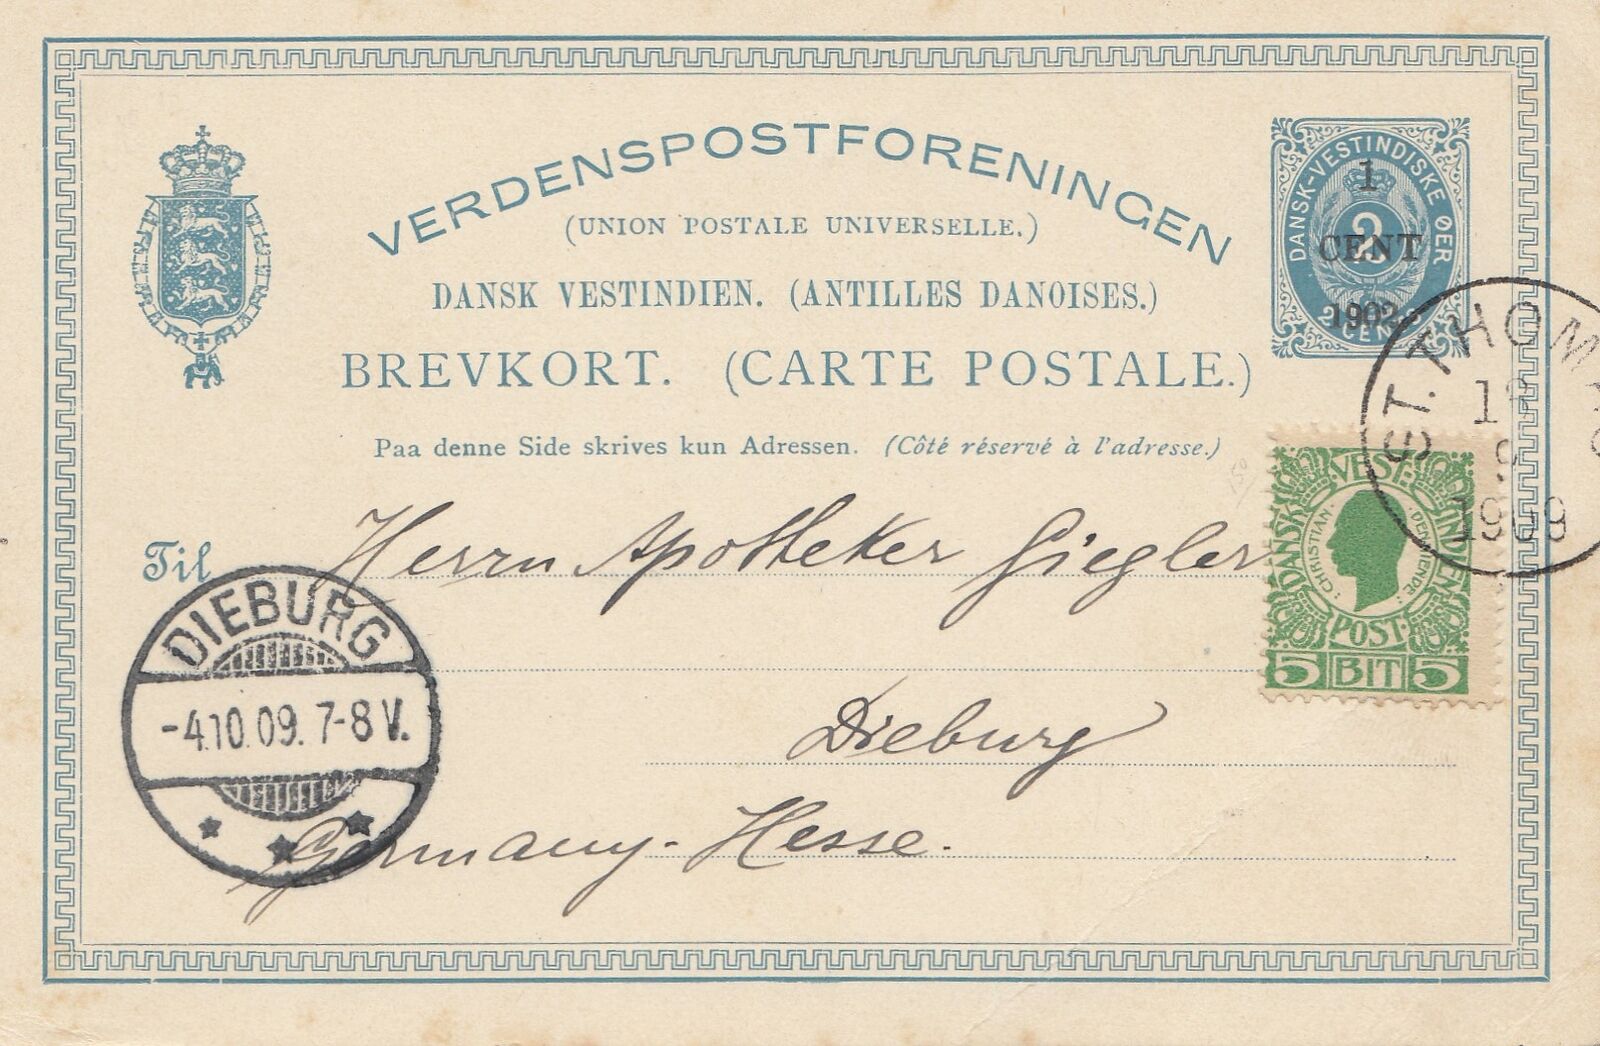 VERDENSPOSTFORENINGEN
(UNION POSTALE UNIVERSELLE.)
DANSK VESTINDIEN. (ANTILLES DANOISES.)
BREVKORT. (CARTE POSTALE.)
Paa denne Side skrives kun Adressen. (Côté réservé à l'adresse.)
DANSK-VESTINDISKE ØER
1
2
CENT
1902
2 CENTS
ST. THOMAS
9
1909
150
DANSK VEST-INDIEN
CHRISTIAN · DEN NIENDE ·
POST
5 BIT 5
Til Herrn Apotheker Giegler
Dieburg
Germany. Hesse.
DIEBURG
-4.10.09. 7-8 V.